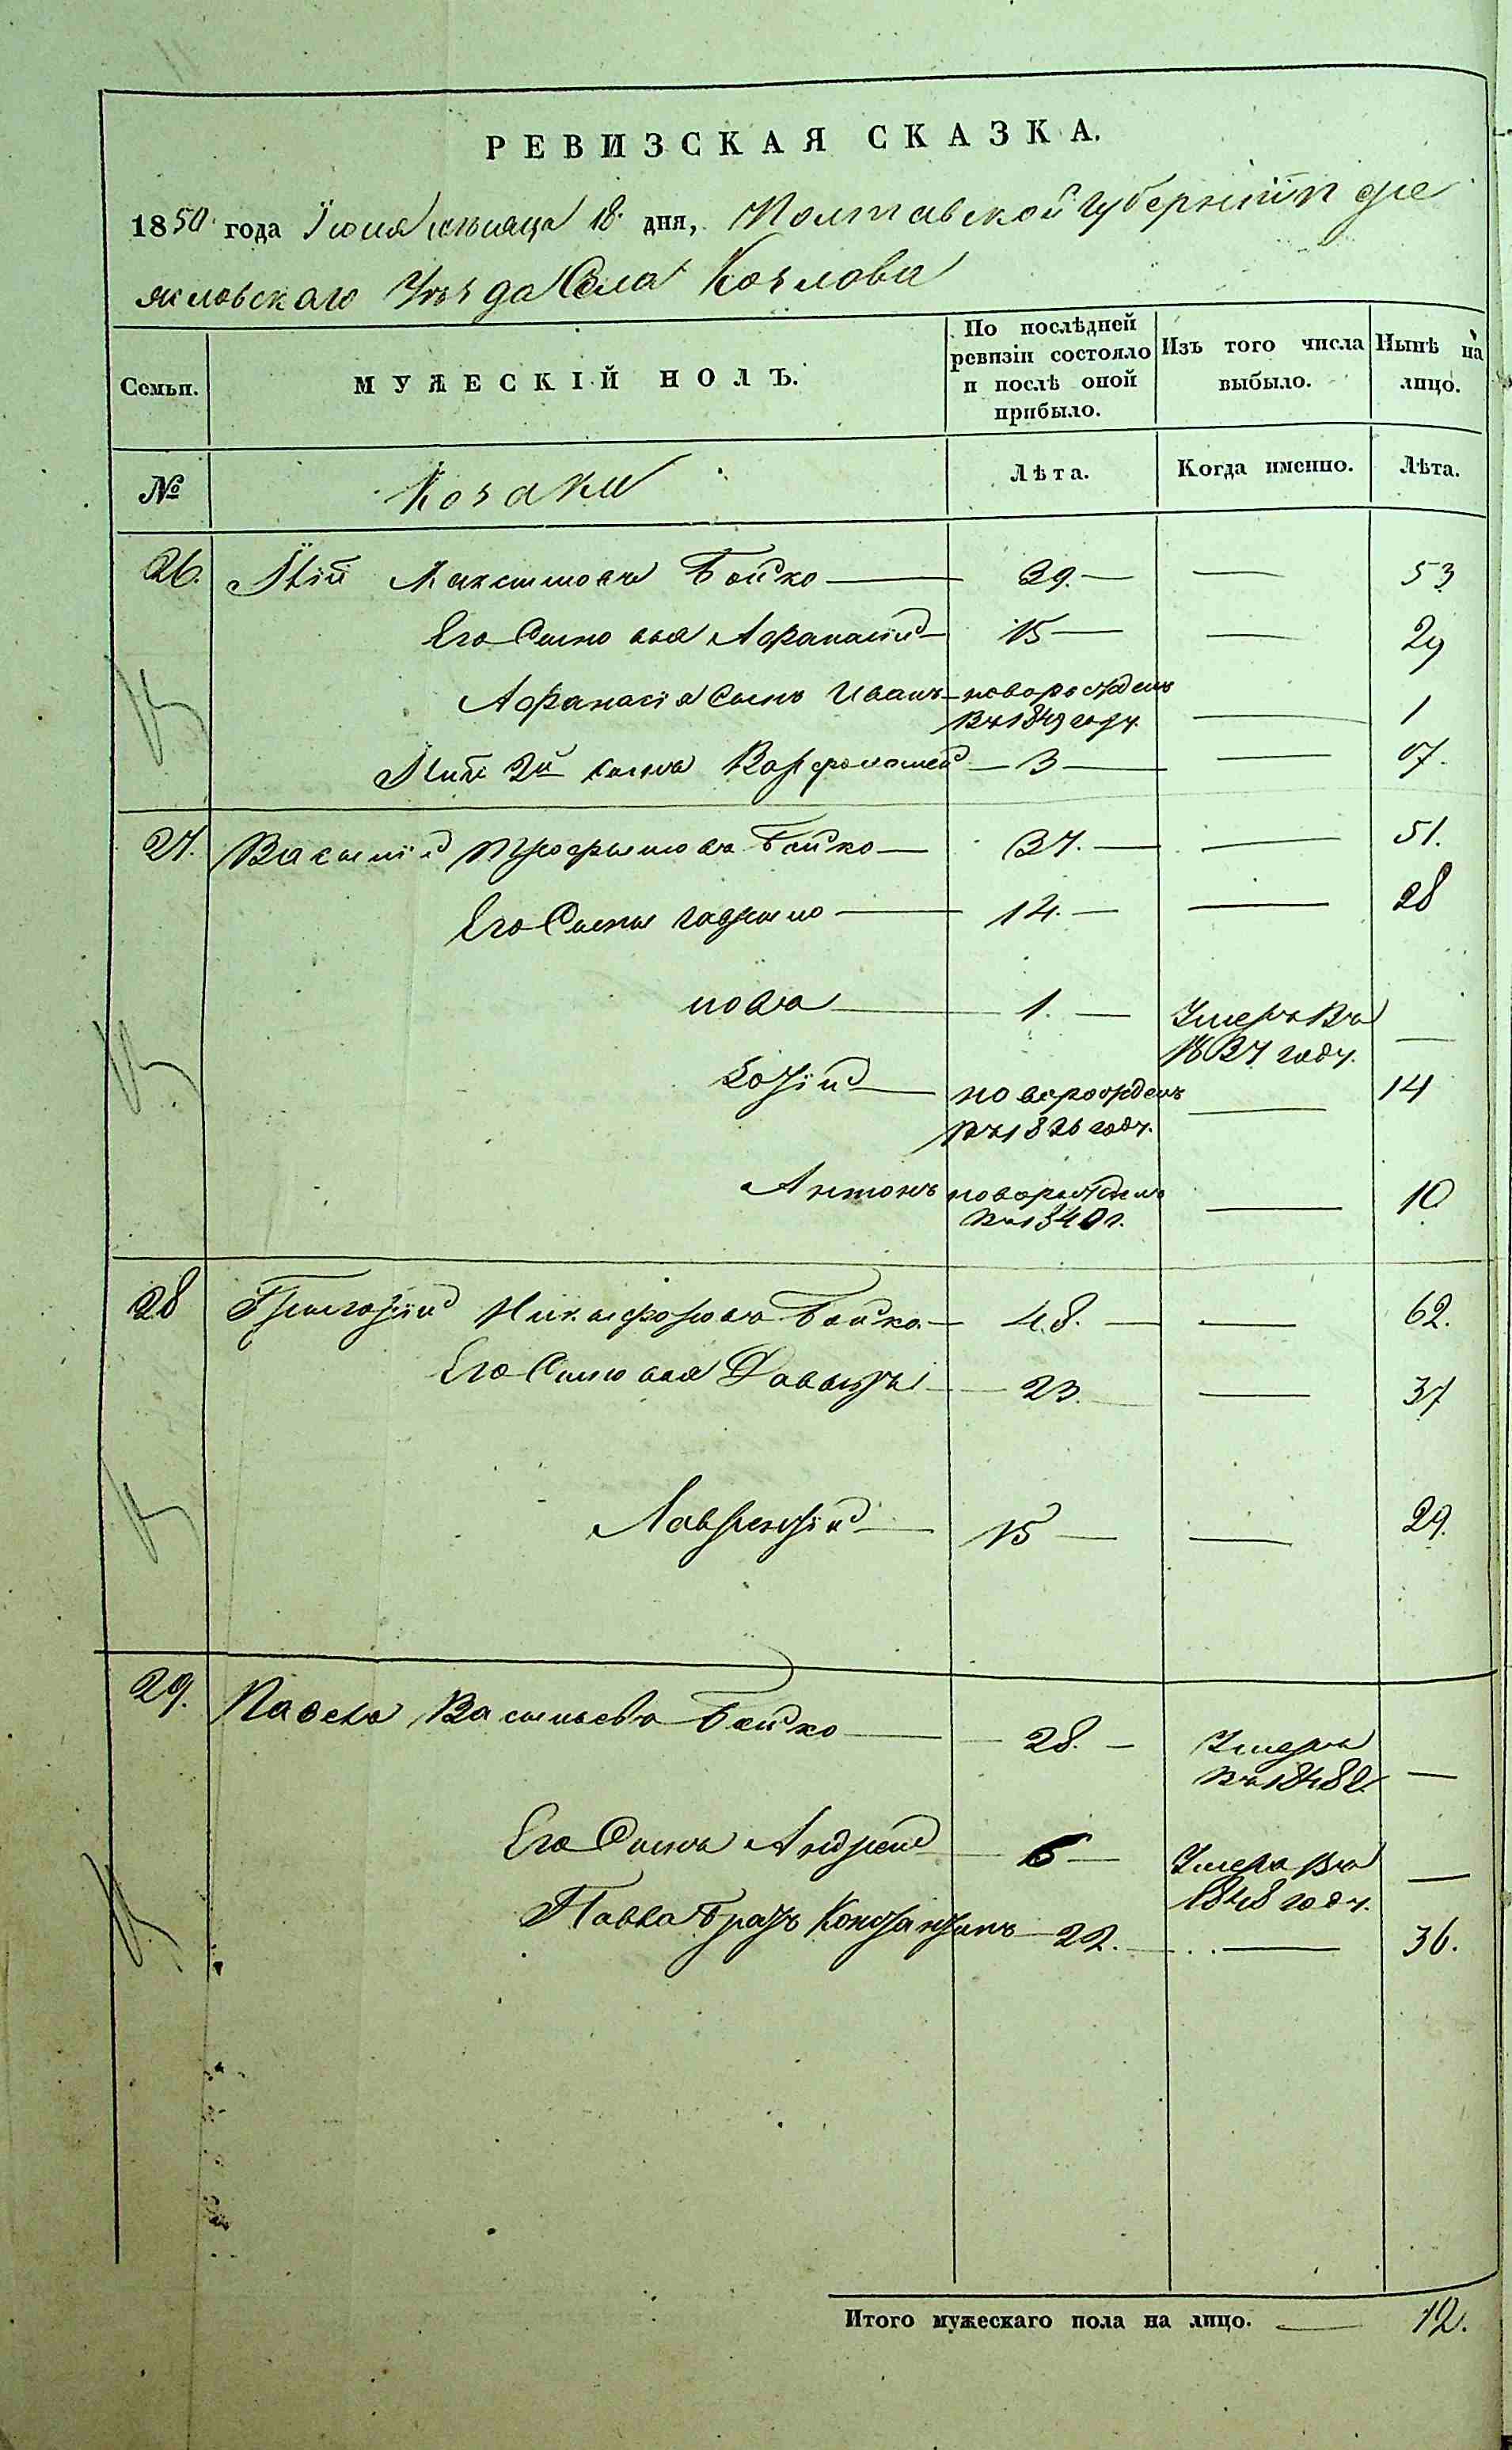 РЕВИЗСКАЯ СКАЗКА.
1850 года Іюня месяца 18 дня, Полтавской губерніи пере
яловскаго Уѣзда Села Козлова
Семьи.
МУЖЕСКІЙ ПОЛЪ.
По послѣдней ревизіи состояло и послѣ оной прибыло.
Изъ того числа выбыло.
Нынѣ на лицо.
№
Козаки
Лѣта.
Когда именно.
Лѣта.
26. Максимовъ Бойко — 39. — — 53
Его Сыновья Афанасій — 15 — — 29
Афанасія Сынъ Иванъ — новорожденъ — 1
въ 1849 году.
2й сынъ Варфоломей — 3 —
27. Василій Трофимовъ Бойко — 37. — — 51.
Его Сыны — 14. — — 28
1. — Умеръ въ —
1837 году.
новорожденъ — 14
въ 1836 году.
Антонъ новорожденъ — 10
въ 1840 г.
28 Григорій Никифоровъ Бойко — 48. — — 62.
Его Сыновья Давыдъ — 23. — 37
Лаврентій — 15 — — 29.
29. Павелъ Васильевъ Бойко — 28. — Умеръ —
въ 1848 г.
Его Сынъ Андрей — 6 — Умеръ въ —
1848 году.
Павла братъ Константинъ — 22. — 36.
Итого мужескаго пола на лицо. — 12.